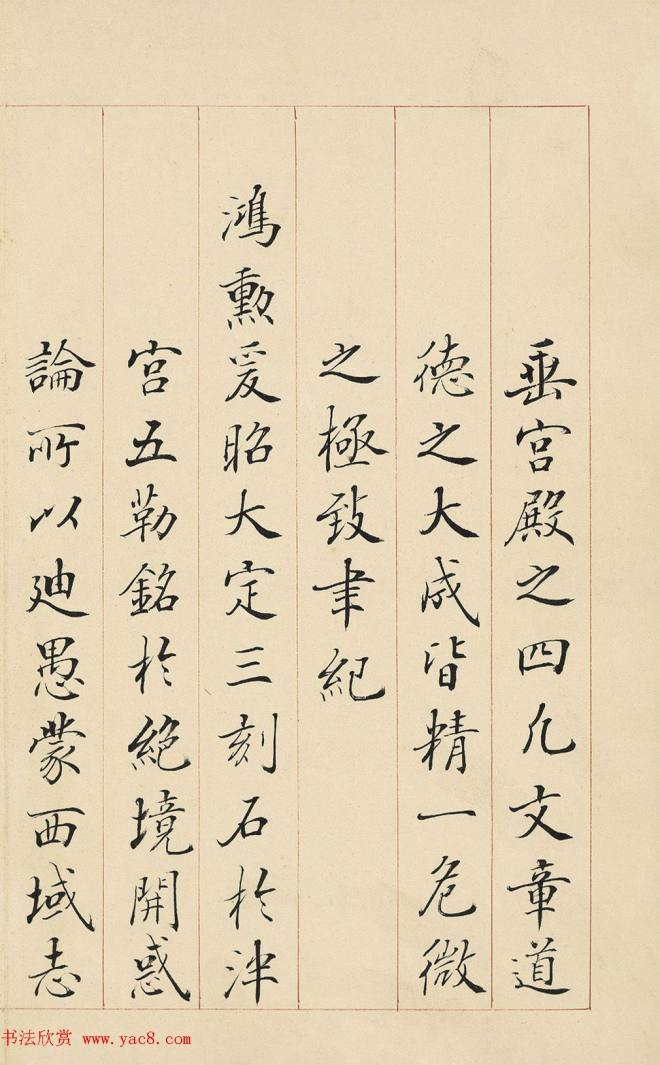 垂宮殿之四凡文章道
德之大成皆精一危微
之極致聿紀
鴻勲爰昭大定三刻石於津
宮五勒銘於絶境開惑
論所以廸愚蒙西域志
书法欣赏 www.yac8.com